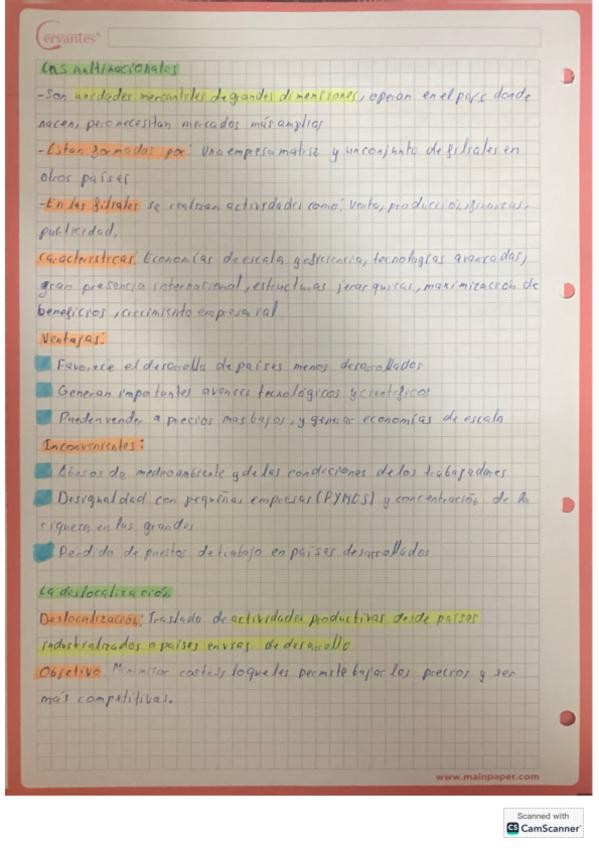 Cervantes
Las multinacionales
-Son unidades mercantiles de grandes dimensiones, operan en el país donde
nacen, pero necesitan mercados más amplios
-Estan formadas por: Una empresa matriz y un conjunto de filiales en
otros países
-En las filiales se realizan actividades como: Venta, producción, finanzas,
publicidad.
Características: Economías de escala y eficiencia, tecnologías avanzadas,
gran presencia internacional, estructuras jerarquicas, maximización de
beneficios, crecimiento empresarial
Ventajas:
Favorece el desarrollo de países menos desarrollados
Generan importantes avances tecnológicos y científicos
Pueden vender a precios mas bajos, y generar economías de escala
Inconvenientes:
Abusos de medroambiente y de las condiciones de los trabajadores
Desigualdad con pequeñas empresas (PYMES) y concentración de la
riqueza en las grandes
Perdida de puestos de trabajo en países desarrollados
La deslocalización
Deslocalización: Traslado de actividades productivas desde países
industrializados a países en vías de desarrollo
Objetivo: Minimizar costes, lo que les permite bajar los precios y ser
más competitivas.
www.mainpaper.com
Scanned with
CS CamScanner